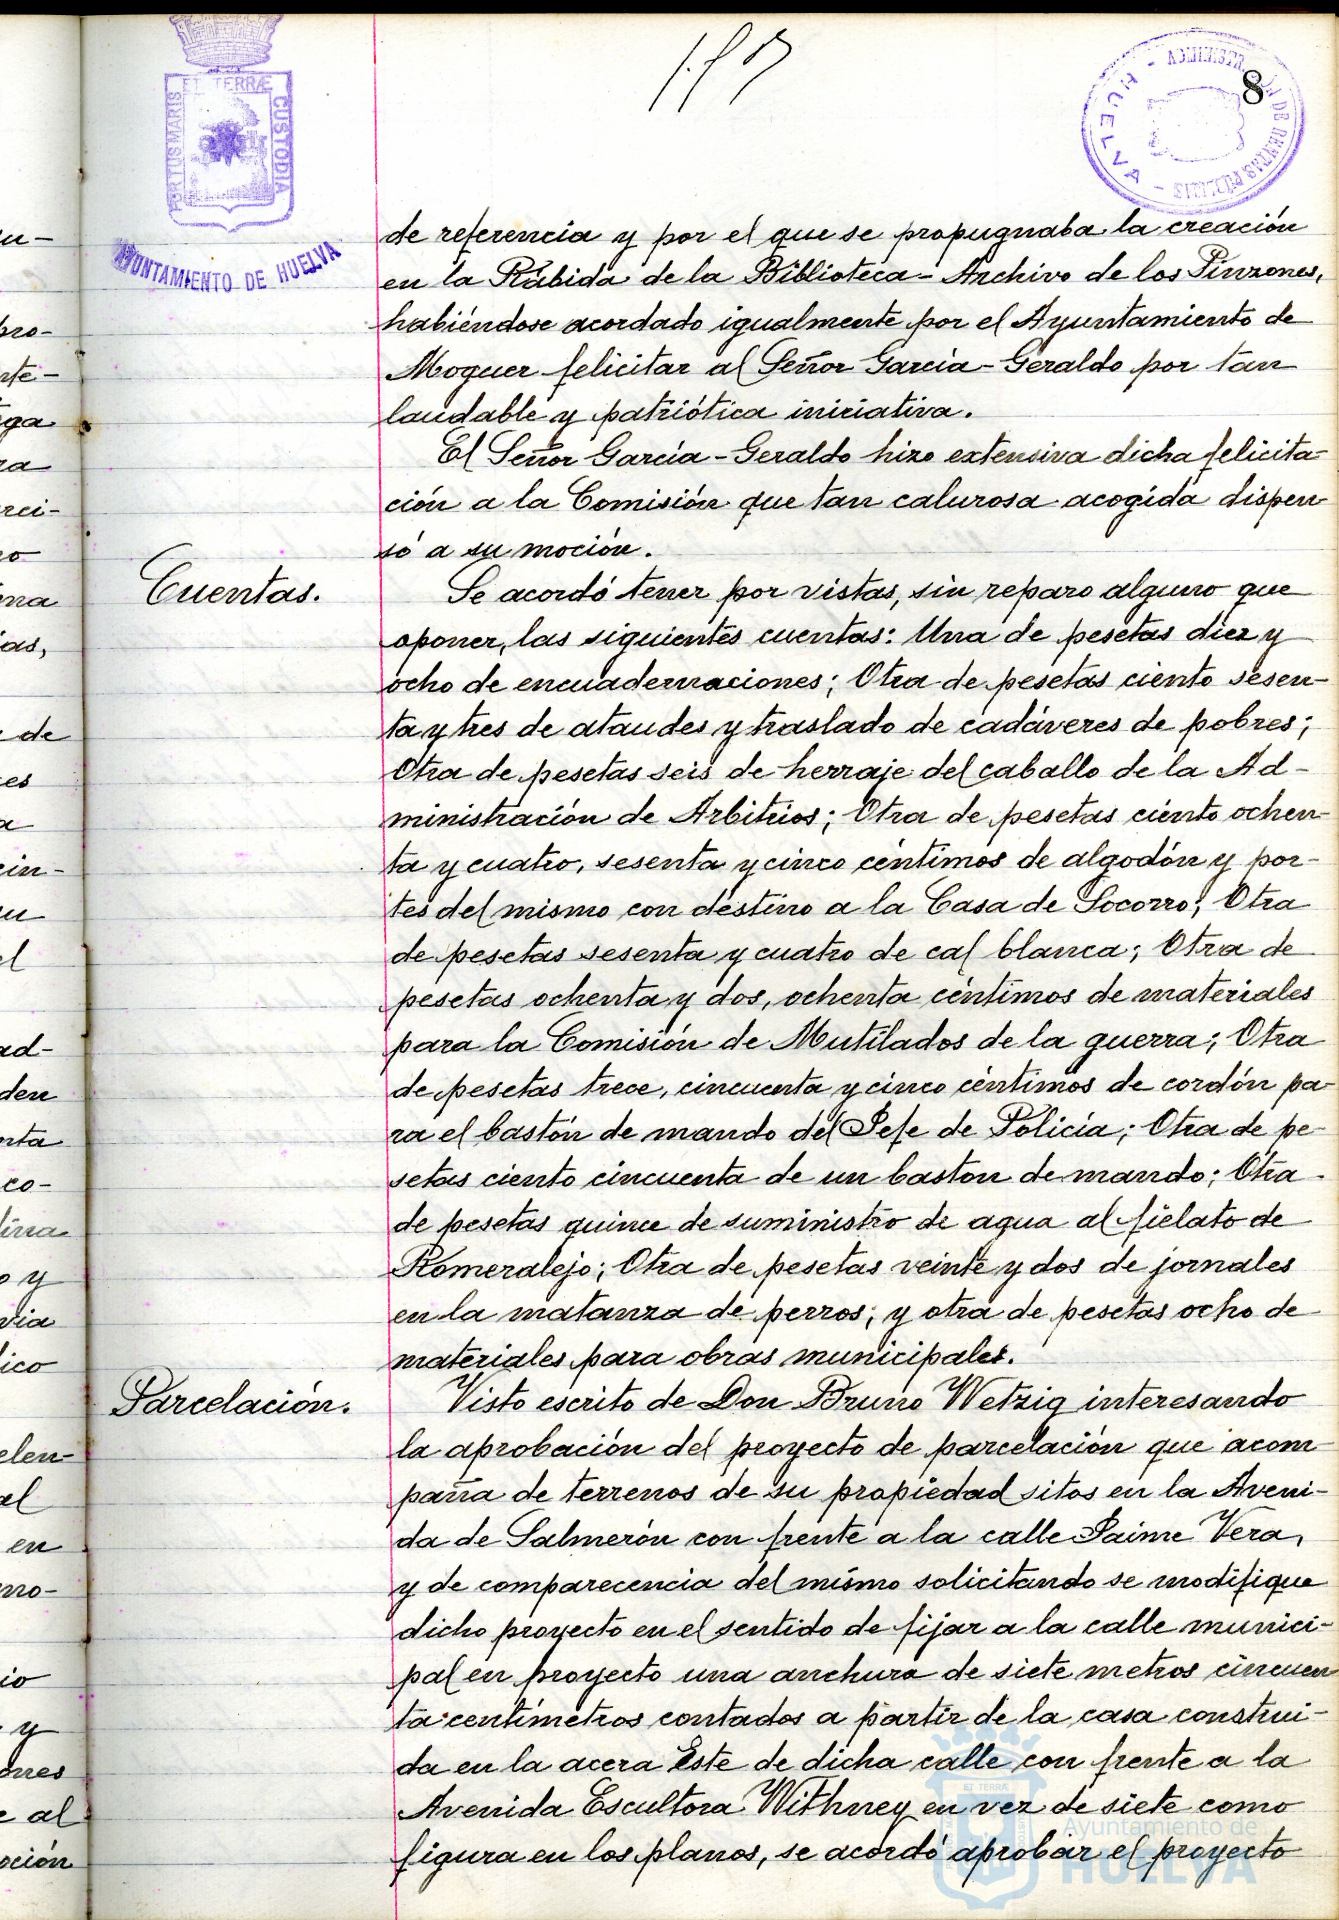 8
ET TERRÆ
PORTUS MARIS
CUSTODIA
AYUNTAMIENTO DE HUELVA
ADMINISTRACIÓN DE RENTAS PÚBLICAS - HUELVA -
de referencia y por el que se propugnaba la creación
en la Rábida de la Biblioteca - Archivo de los Pinzones,
habiéndose acordado igualmente por el Ayuntamiento de
Moguer felicitar al Señor García - Geraldo por tan
laudable y patriótica iniciativa.
El Señor García - Geraldo hizo extensiva dicha felicita-
ción a la Comisión que tan calurosa acogida dispen
só a su moción.
Cuentas.
Se acordó tener por vistas, sin reparo alguno que
oponer, las siguientes cuentas: Una de pesetas diez y
ocho de encuadernaciones; Otra de pesetas ciento sesen-
ta y tres de ataudes y traslado de cadáveres de pobres;
Otra de pesetas seis de herraje del caballo de la Ad-
ministración de Arbitrios; Otra de pesetas ciento ochen-
ta y cuatro, sesenta y cinco céntimos de algodón y por-
tes del mismo con destino a la Casa de Socorro; Otra
de pesetas sesenta y cuatro de cal blanca; Otra de
pesetas ochenta y dos, ochenta céntimos de materiales
para la Comisión de Mutilados de la guerra; Otra
de pesetas trece, cincuenta y cinco céntimos de cordón pa-
ra el bastón de mando del Jefe de Policía; Otra de pe-
setas ciento cincuenta de un baston de mando; Otra
de pesetas quince de suministro de agua al fielato de
Romeralejo; Otra de pesetas veinte y dos de jornales
en la matanza de perros; y otra de pesetas ocho de
materiales para obras municipales.
Parcelación.
Visto escrito de Don Bruno Wetzig interesando
la aprobación del proyecto de parcelación que acom-
paña de terrenos de su propiedad sitos en la Aveni-
da de Salmerón con frente a la calle Jaime Vera,
y de comparecencia del mismo solicitando se modifique
dicho proyecto en el sentido de fijar a la calle munici-
pal en proyecto una anchura de siete metros cincuen
ta centímetros contados a partir de la casa construi-
da en la acera Este de dicha calle con frente a la
Avenida Escultora Withney en vez de siete como
figura en los planos, se acordó aprobar el proyecto
Ayuntamiento de
HUELVA